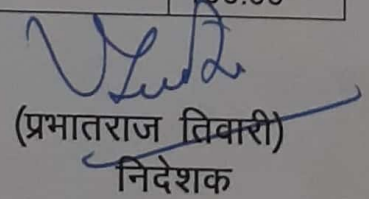 (प्रभातराज तिवारी)
निदेशक